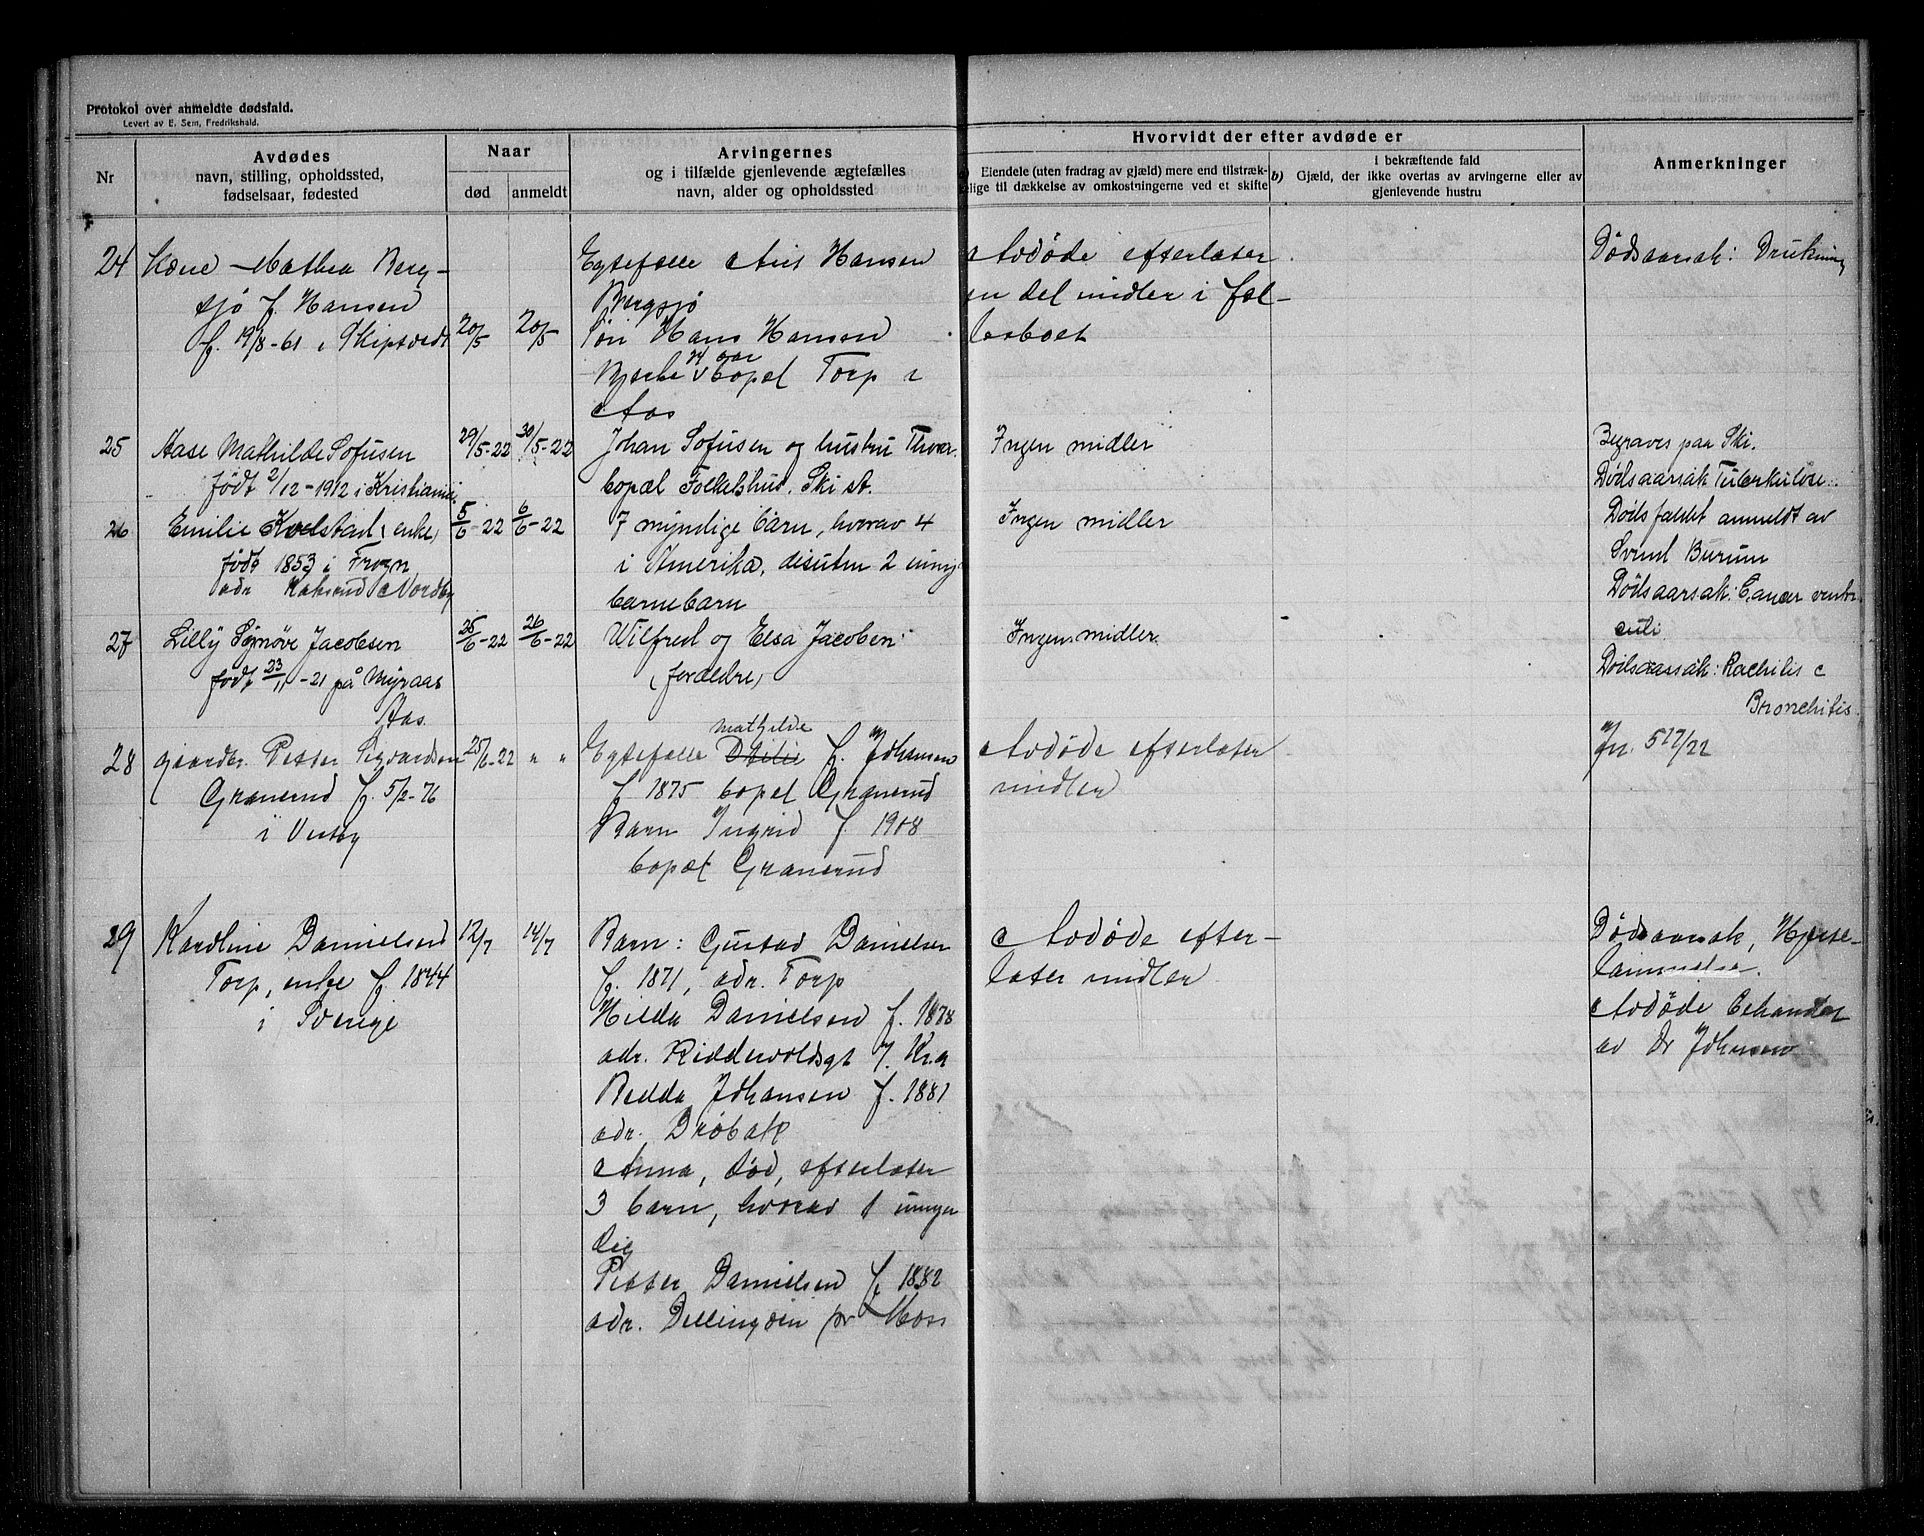 Protokol over anmeldte dødsfald.
Levert av E. Sem, Fredrikshald.
Nr
Avdødes
navn, stilling, opholdssted,
fødselsaar, fødested
Naar
død
anmeldt
Arvingernes
og i tilfælde gjenlevende ægtefælles
navn, alder og opholdssted
Hvorvidt der efter avdøde er
Eiendele (uten fradrag av gjæld) mere end tilstræk-
lige til dækkelse av omkostningerne ved et skifte
b)
I bekræftende fald
Gjæld, der ikke overtas av arvingerne eller av
gjenlevende hustru
Anmerkninger
24
Mathea Berg-
sjø f. Hansen
f. 19/8-61 i Skiptvedt
20/5
20/5
Egtefælle Hansen
Bergsjø
Søn Hans Hansen
24 aar
bopæl Torp i
Aas
Avdøde efterlater
en del midler i fæl-
lesboet
Dødsaarsak: Drukning
25
Aase Mathilde Sofusen
født 2/12-1912 i Kristiania.
29/5-22
30/5-22
Johan Sofusen og hustru
bopæl Folkets hus. Ski st.
Ingen midler
Begraves paa Ski.
Dødsaarsak Tuberkuløse
26
Emilie Kvelstad, enke,
født 1853 i Frogn
adr Nordby
5/6-22
6/6-22
7 myndige barn, hvorav 4
i Amerika, desuten 2 umy.
barnebarn
Ingen midler
Dødsfaldet anmeldt av
Svend Burum
Dødsaarsak: Cancer ventri
culi
27
Lilly Synøve Jacobsen
født 23/11-21 på Myraas
Aas.
25/6-22
26/6-22
Wilfred og Elsa Jacobsen
(foreldre)
Ingen midler
Dødsaarsak: Rachitis c
Bronchitis.
28
gaardbr. Petter Sigvardsen
Granerud f. 5/2-76
i Vestby
25/6-22
" "
Mathilde
Egtefælle Otilie f. Johansen
f 1875 bopæl Granerud
Barn Ingrid f. 1908
bopæl Granerud
Avdøde efterlater
midler
Jn. 517/22
29
Karoline Danielsen
Torp, enke f 1844
i Sverige
12/7
14/7
Barn: Gustav Danielsen
f. 1871, adr. Torp
Hilda Danielsen f. 1878
adr. Riddervoldsgt 7. Kr.a
Johansen f. 1881
adr. Drøbak
Anna, død, efterlater
3 barn, hvorav 1 umyn
dig
Petter Danielsen f 1882
adr. Dillingøen pr Moss
Avdøde efter-
later midler
Dødsaarsak, Hjerte-
lammelse.
Avdøde behandlet
av Dr Johnsen